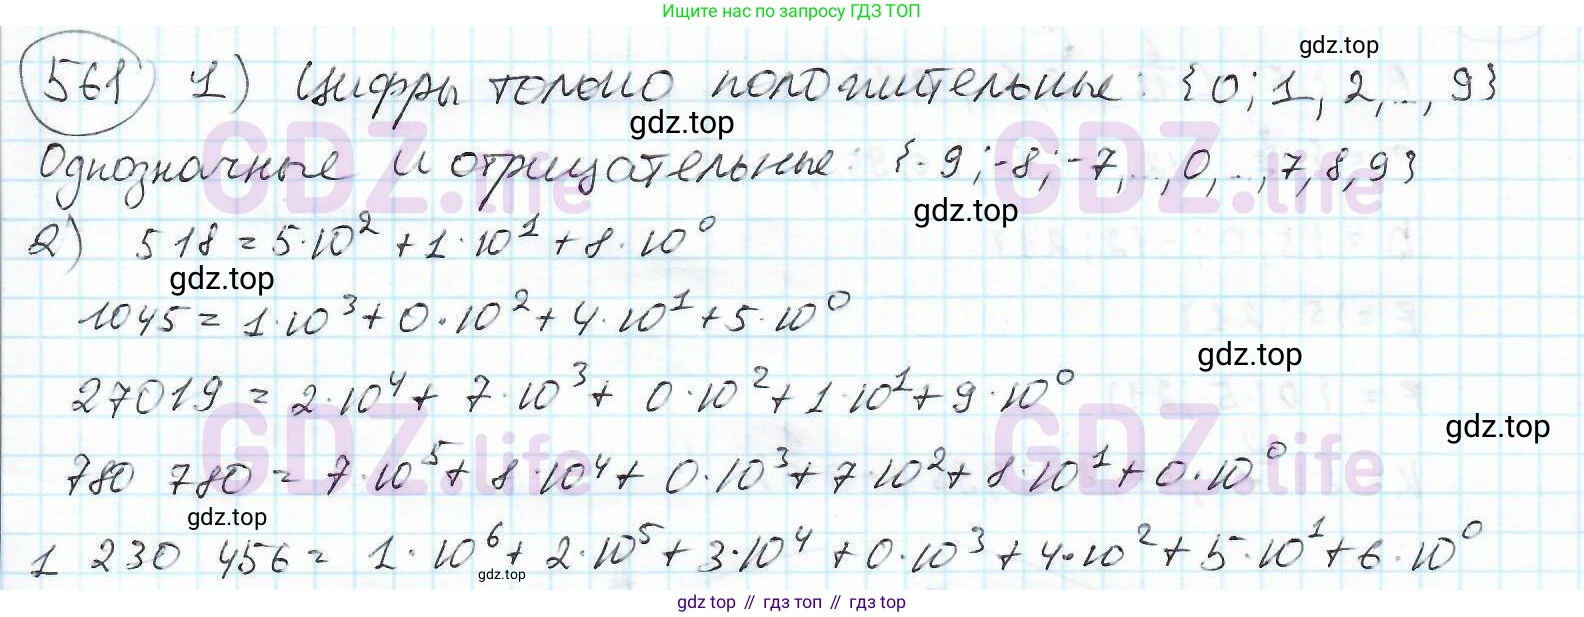 Ищите нас по запросу ГДЗ ТОП
gdz.top
561 1) Цифры только положительные: {0; 1, 2, .., 9}
gdz.top
GDZ.life GDZ.life
Однозначные и отрицательные: {-9; -8; -7, .., 0, .., 7, 8, 9}
gdz.top
2) 518 = 5·10² + 1·10¹ + 8·10⁰
gdz.top
1045 = 1·10³ + 0·10² + 4·10¹ + 5·10⁰
gdz.top
27019 = 2·10⁴ + 7·10³ + 0·10² + 1·10¹ + 9·10⁰
gdz.top
GDZ.life GDZ.life
780 780 = 7·10⁵ + 8·10⁴ + 0·10³ + 7·10² + 8·10¹ + 0·10⁰
gdz.top
1 230 456 = 1·10⁶ + 2·10⁵ + 3·10⁴ + 0·10³ + 4·10² + 5·10¹ + 6·10⁰
gdz.top
gdz top // гдз топ // gdz top